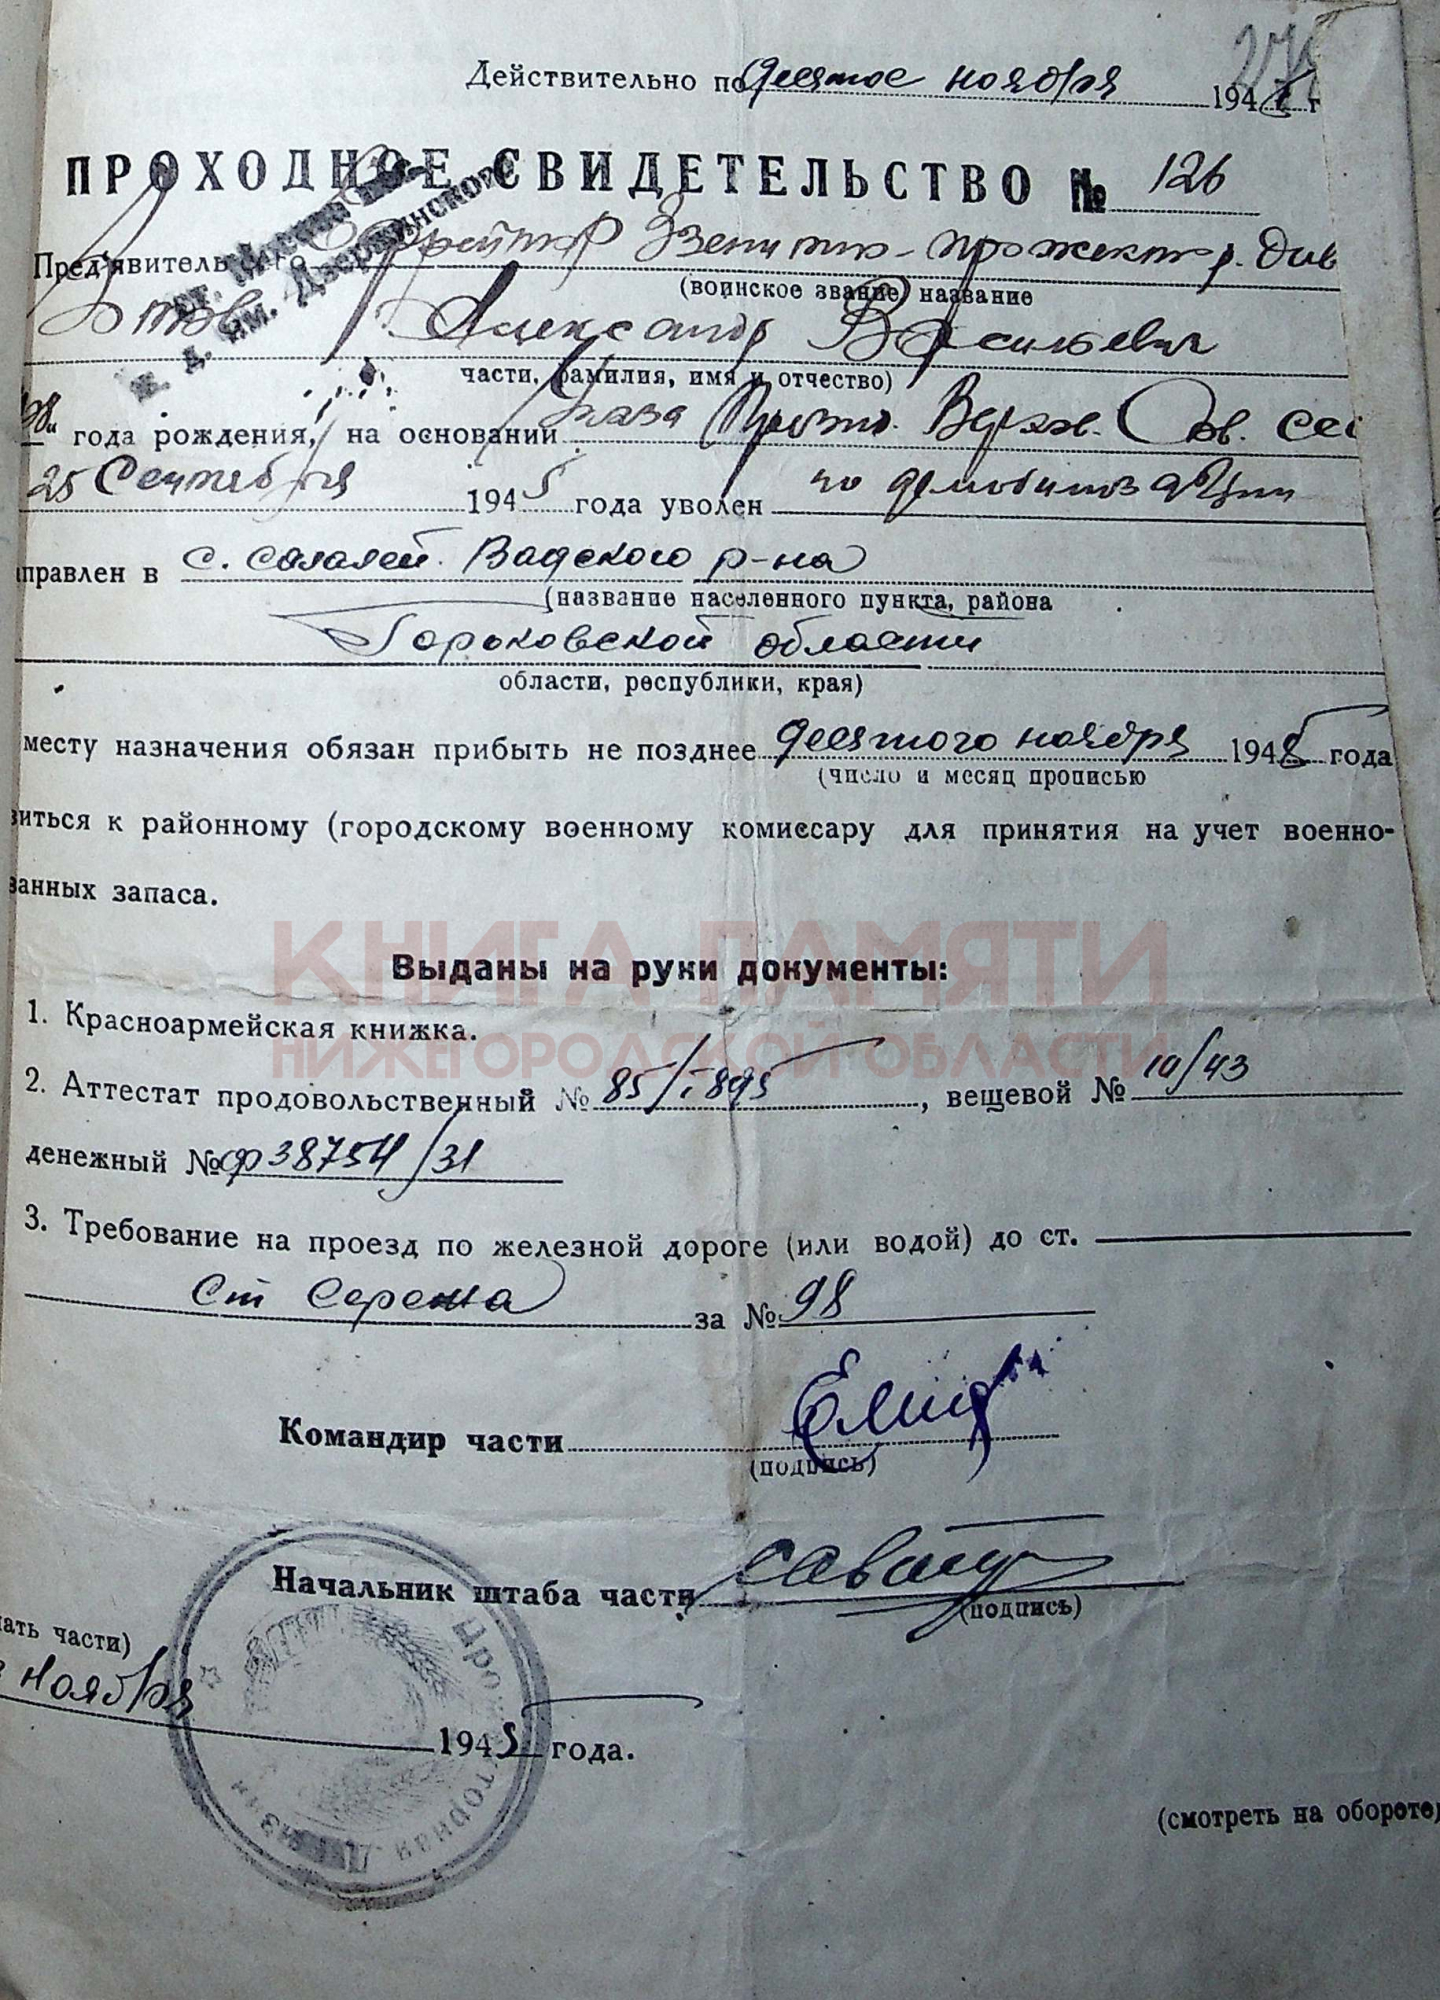 Действительно по десятое ноября 1945 г
ПРОХОДНОЕ СВИДЕТЕЛЬСТВО № 126
Пред'явитель сего Ефрейтор Зенитно-прожектор. див
(воинское звание, название
Александр Васильевич
части, фамилия, имя и отчество)
года рождения, на основании Указа През. Верх. Сов. ССС
25 Сентября 1945 года уволен по демобилизации
аправлен в с. Салалей Вадского р-на
(название населенного пункта, района
Горьковской области
области, республики, края)
месту назначения обязан прибыть не позднее десятого ноября 1945 года
(число и месяц прописью
виться к районному (городскому военному комиссару для принятия на учет военно-
занных запаса.
КНИГА ПАМЯТИ
НИЖЕГОРОДСКОЙ ОБЛАСТИ
Выданы на руки документы:
1. Красноармейская книжка.
2. Аттестат продовольственный № 85/1895, вещевой № 10/43
денежный № ф38754/31
3. Требование на проезд по железной дороге (или водой) до ст.
Ст Сережа за № 98
Командир части
(подпись)
Начальник штаба части
(подпись)
чать части)
ноября 1945 года.
(смотреть на обороте)